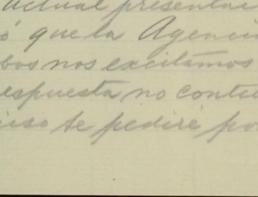 actual presentar
ó que la Agenci
bos nos excitamos
espuesta no conte
ciso se pedire po